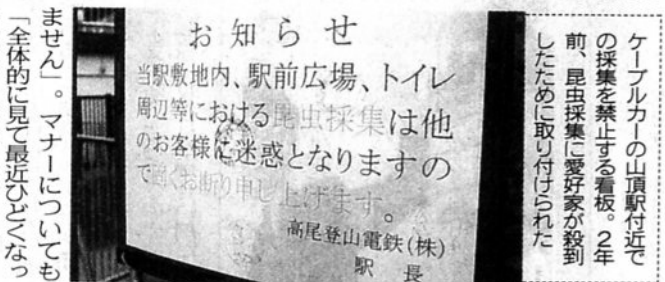 ケーブルカーの山頂駅付近で
の採集を禁止する看板。2年
前、昆虫採集に愛好家が殺到
したために取り付けられた
お知らせ
当駅敷地内、駅前広場、トイレ
周辺等における昆虫採集は他
のお客様に迷惑となりますの
で固くお断り申し上げます。
高尾登山電鉄(株)
駅 長
ません」。マナーについても
「全体的に見て最近ひどくなっ